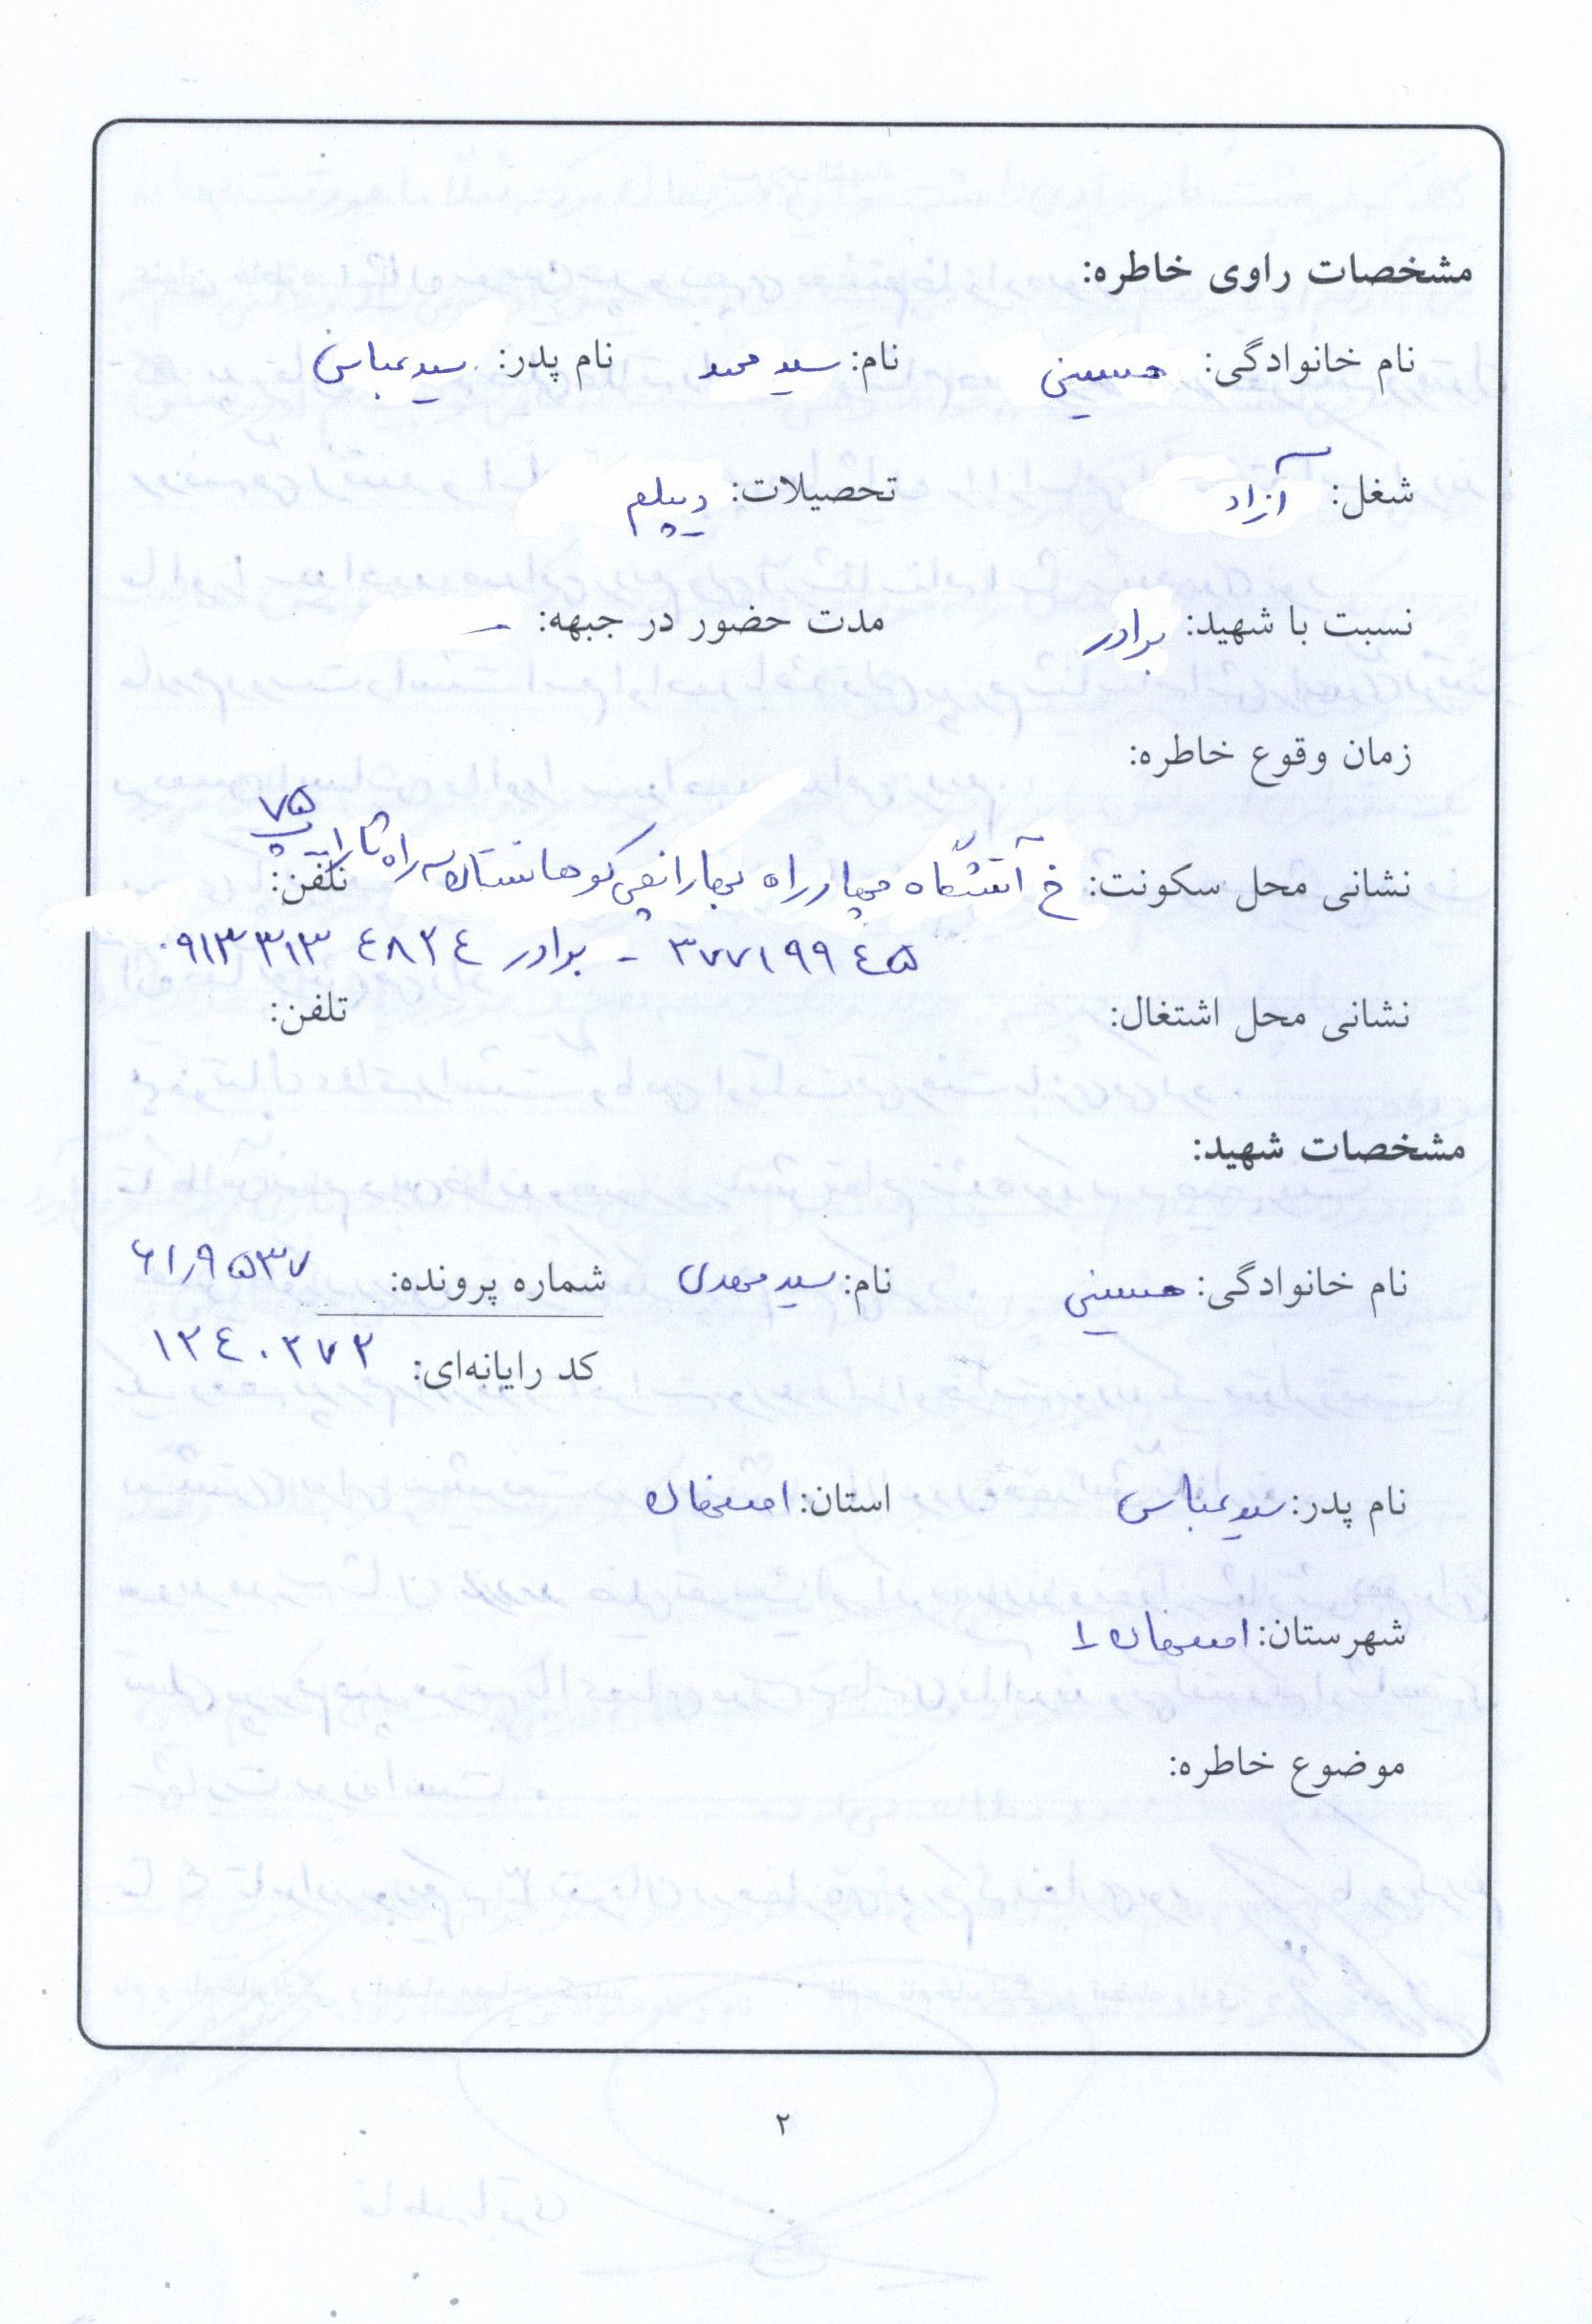 مشخصات راوی خاطره:
نام خانوادگی: حسینی نام: سید محمد نام پدر: سید عباس
شغل: آزاد تحصیلات: دیپلم
نسبت با شهید: برادر مدت حضور در جبهه: -
زمان وقوع خاطره:
نشانی محل سکونت: خ آتشگاه چهارراه بهارانچی کوهانستان سه راه تارا پ ۷۵ تلفن:
۳۷۷۱۹۹۴۵ - برادر ۰۹۱۳۳۱۳۴۸۲۴
نشانی محل اشتغال: تلفن:
مشخصات شهید:
نام خانوادگی: حسینی نام: سید مهدی شماره پرونده: ۶۱٫۹۵۳۷
کد رایانه‌ای: ۱۲۴۰۲۷۲
نام پدر: سید عباس استان: اصفهان
شهرستان: اصفهان ۱
موضوع خاطره:
۲